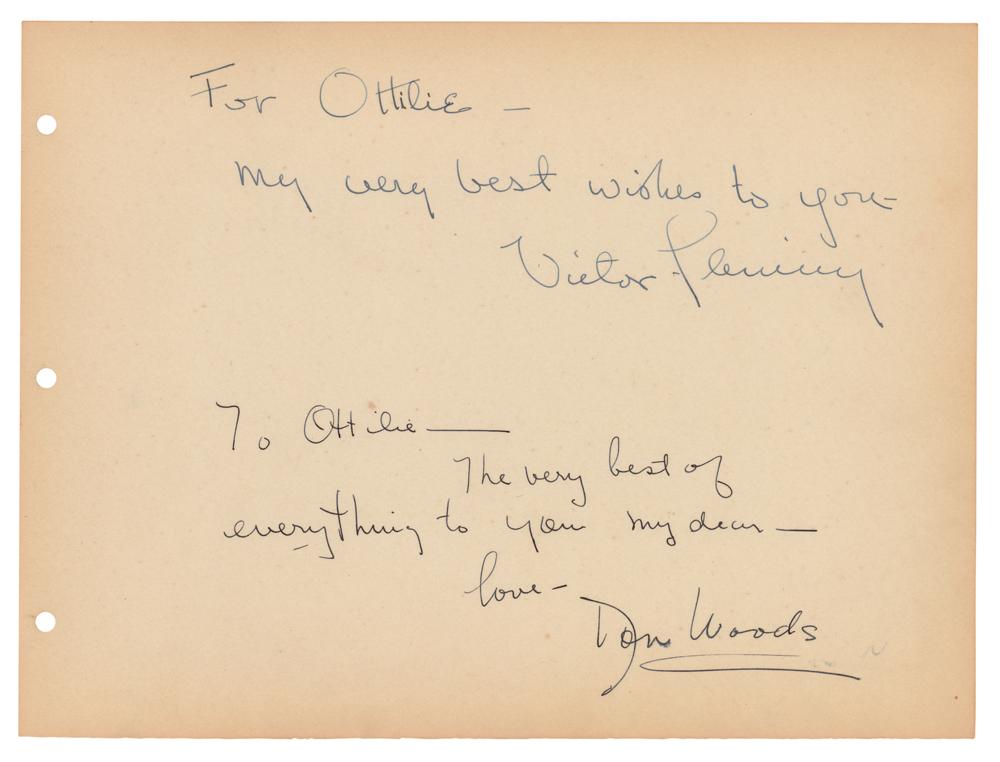 For Ottilie –
My very best wishes to you –
Victor Fleming
To Ottilie —
The very best of
everything to you my dear —
love –
Don Woods